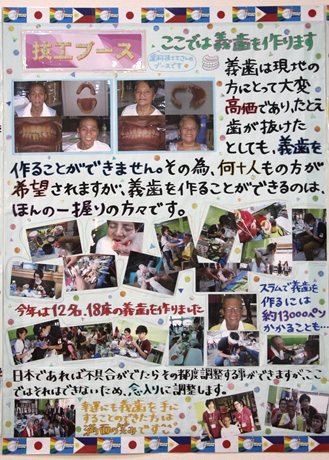 技工ブース
ここでは義歯を作ります
歯科技工士さんの
ブースです
義歯は現地の
方にとって大変
高価であり、たとえ
歯が抜けた
としても、義歯を
作ることができません。その為、何十人もの方が
希望されますが、義歯を作ることができるのは、
ほんの一握りの方々です。
スラムで義歯を
作るには
約13000ペソ
かかることも…
今年は12名、18床の義歯を作りました
日本であれば不具合がでたらその都度調整する事ができますが、ここ
ではそれはできないため、念入りに調整します。
幸運にも義歯を手に
することのできた方は
満面の笑みです